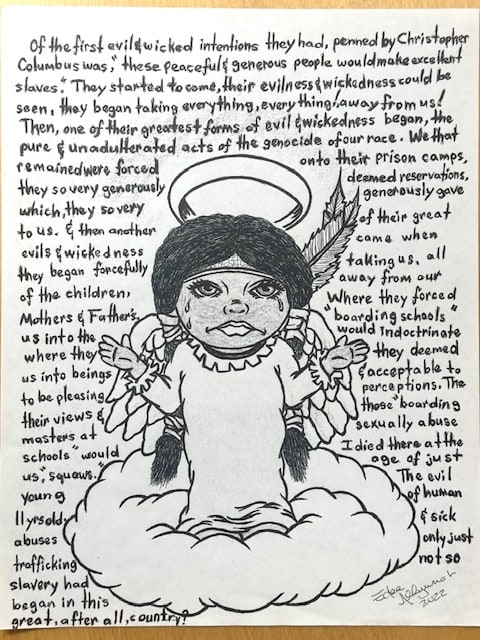 Of the first evil & wicked intentions they had, penned by Christopher
Columbus was, "these peaceful & generous people would make excellent
slaves." They started to come, their evilness & wickedness could be
seen, they began taking everything, everything, away from us!
Then, one of their greatest forms of evil & wickedness began, the
pure & unadulterated acts of the genocide of our race. We that
remained were forced onto their prison camps,
they so very generously deemed reservations,
which, they so very generously gave
to us. & then another of their great
evils & wickedness came when
they began forcefully taking us, all
of the children, away from our
Mothers & Fathers, Where they forced
us into the "boarding schools"
where they would Indoctrinate
us into beings they deemed
to be pleasing & acceptable to
their views & perceptions. The
masters at those "boarding
schools" would sexually abuse
us, "squaws." I died there at the
young age of just
11 yrs old. The evil
abuses of human
trafficking & sick
slavery had only just
began in this not so
great, after all, country?
2022